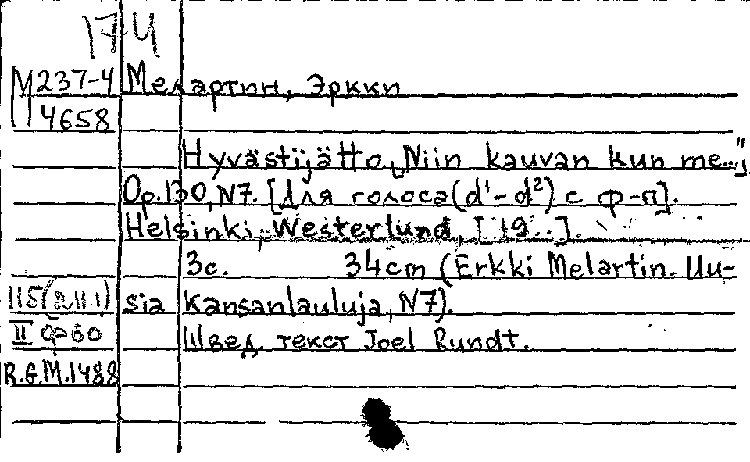 17-4
М237-4 Мелартин, Эркки
4658
Hyvästijätto „Niin kauvan kun me..."
Op.130, N7. [Для голоса (d¹-d²) с ф-п].
Helsinki, Westerlund, [19..].
3с. 34cm (Erkki Melartin. Uu-
sia kansanlauluja, N7).
II Швед. текст Joel Rundt.
R.G.M.1488